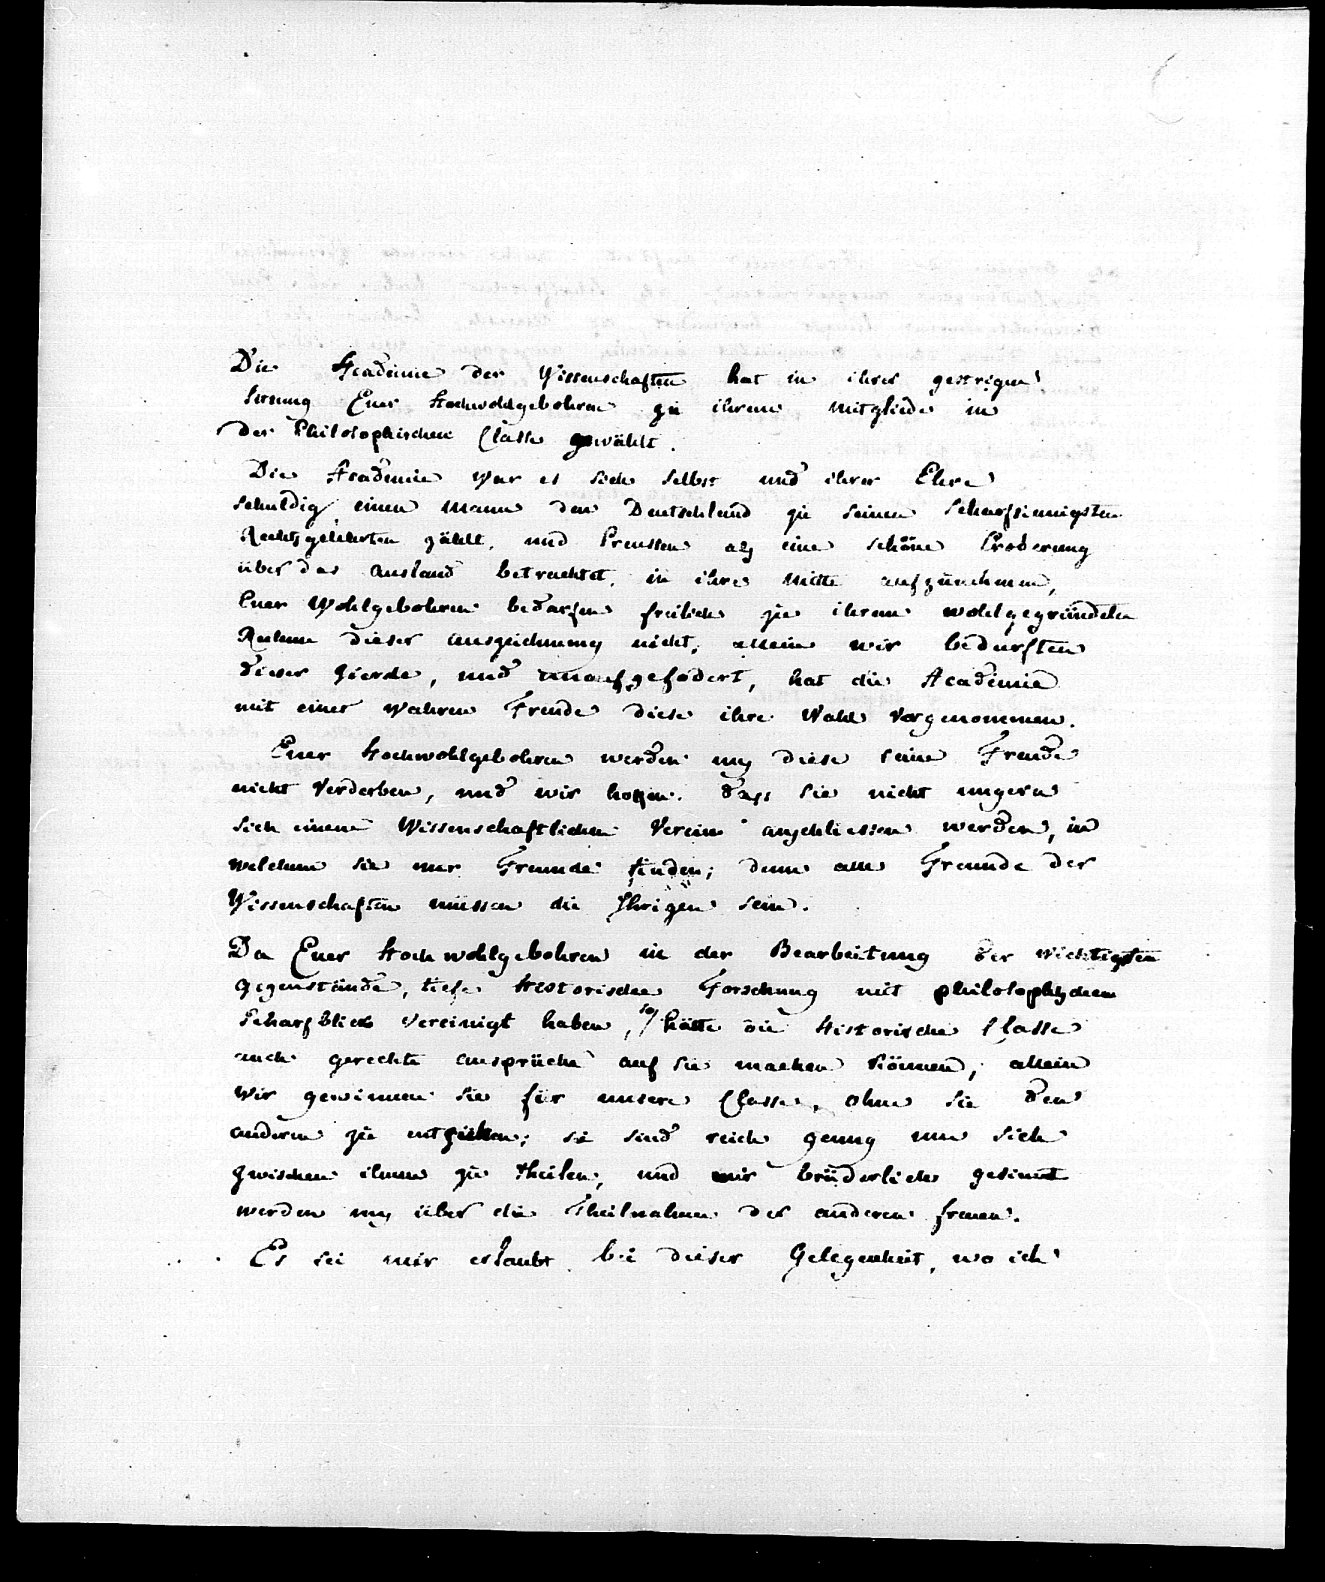 Die Academie der Wissenschaften hat in ihrer gestrigen
Sitzung Euer Hochwohlgebohren zu ihrem Mitgliede in
der Philosophischen Classe gewählt.
Die Academie war es sich selbst und ihrer Ehre
schuldig einen Mann den Deutschland zu seinen scharfsinnigsten
Rechtsgelehrten zählt, und Preussen als eine schöne Eroberung
über das Ausland betrachtet, in ihre Mitte aufzunehmen,
Euer Wohlgebohren bedarfen freilich zu ihrem wohlgegründeten
Ruhme dieser Auszeichnung nicht, allein wir bedurften
dieser Zierde, und unaufgefodert, hat die Academie
mit einer wahren Freude diese ihre Wahl vorgenommen.
Euer Hochwohlgebohren werden uns diese reine Freude
nicht verderben, und wir hoffen, dass Sie nicht ungern
sich einem Wissenschaftlichen Verein anschliessen werden, in
welchem sie nur Freunde finden; denn alle Freunde der
Wissenschaften müssen die Ihrigen sein.
Da Euer Hochwohlgebohren in der Bearbeitung der wichtigsten
Gegenstände, tiefe Historische Forschung mit philosophischem
Scharfblick vereinigt haben, so hätte die Historische Classe
auch gerechte Ansprüche auf Sie machen können; allein
wir gewinnen Sie für unsere Classe, ohne Sie den
anderen zu entziehen; sie sind reich genug um sich
zwischen ihnen zu theilen, und wir brüderlich gesinnt
werden uns über die Theilnahme der anderen freuen.
Es sei mir erlaubt bei dieser Gelegenheit, wo ich